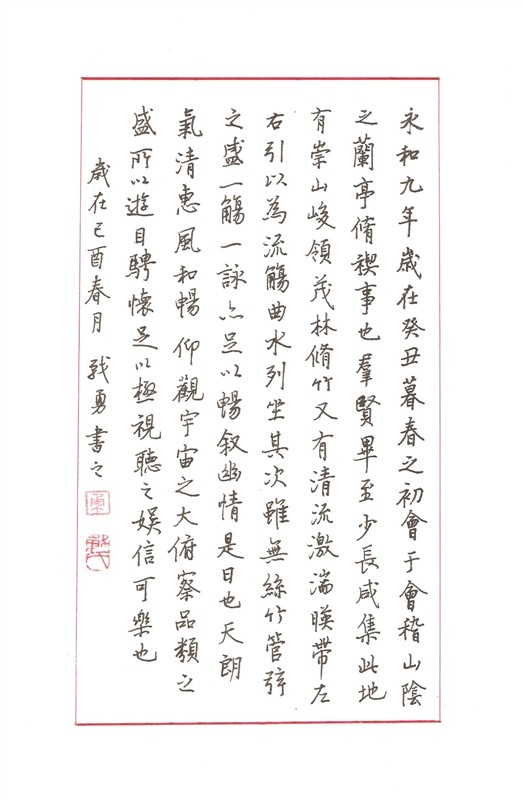 永和九年歲在癸丑暮春之初會于會稽山陰
之蘭亭脩禊事也羣賢畢至少長咸集此地
有崇山峻領茂林脩竹又有清流激湍暎帶左
右引以為流觴曲水列坐其次雖無絲竹管弦
之盛一觴一詠亦足以暢叙幽情是日也天朗
氣清惠風和暢仰觀宇宙之大俯察品類之
盛所以遊目騁懷足以極視聽之娛信可樂也
歲在己酉春月 勇書之